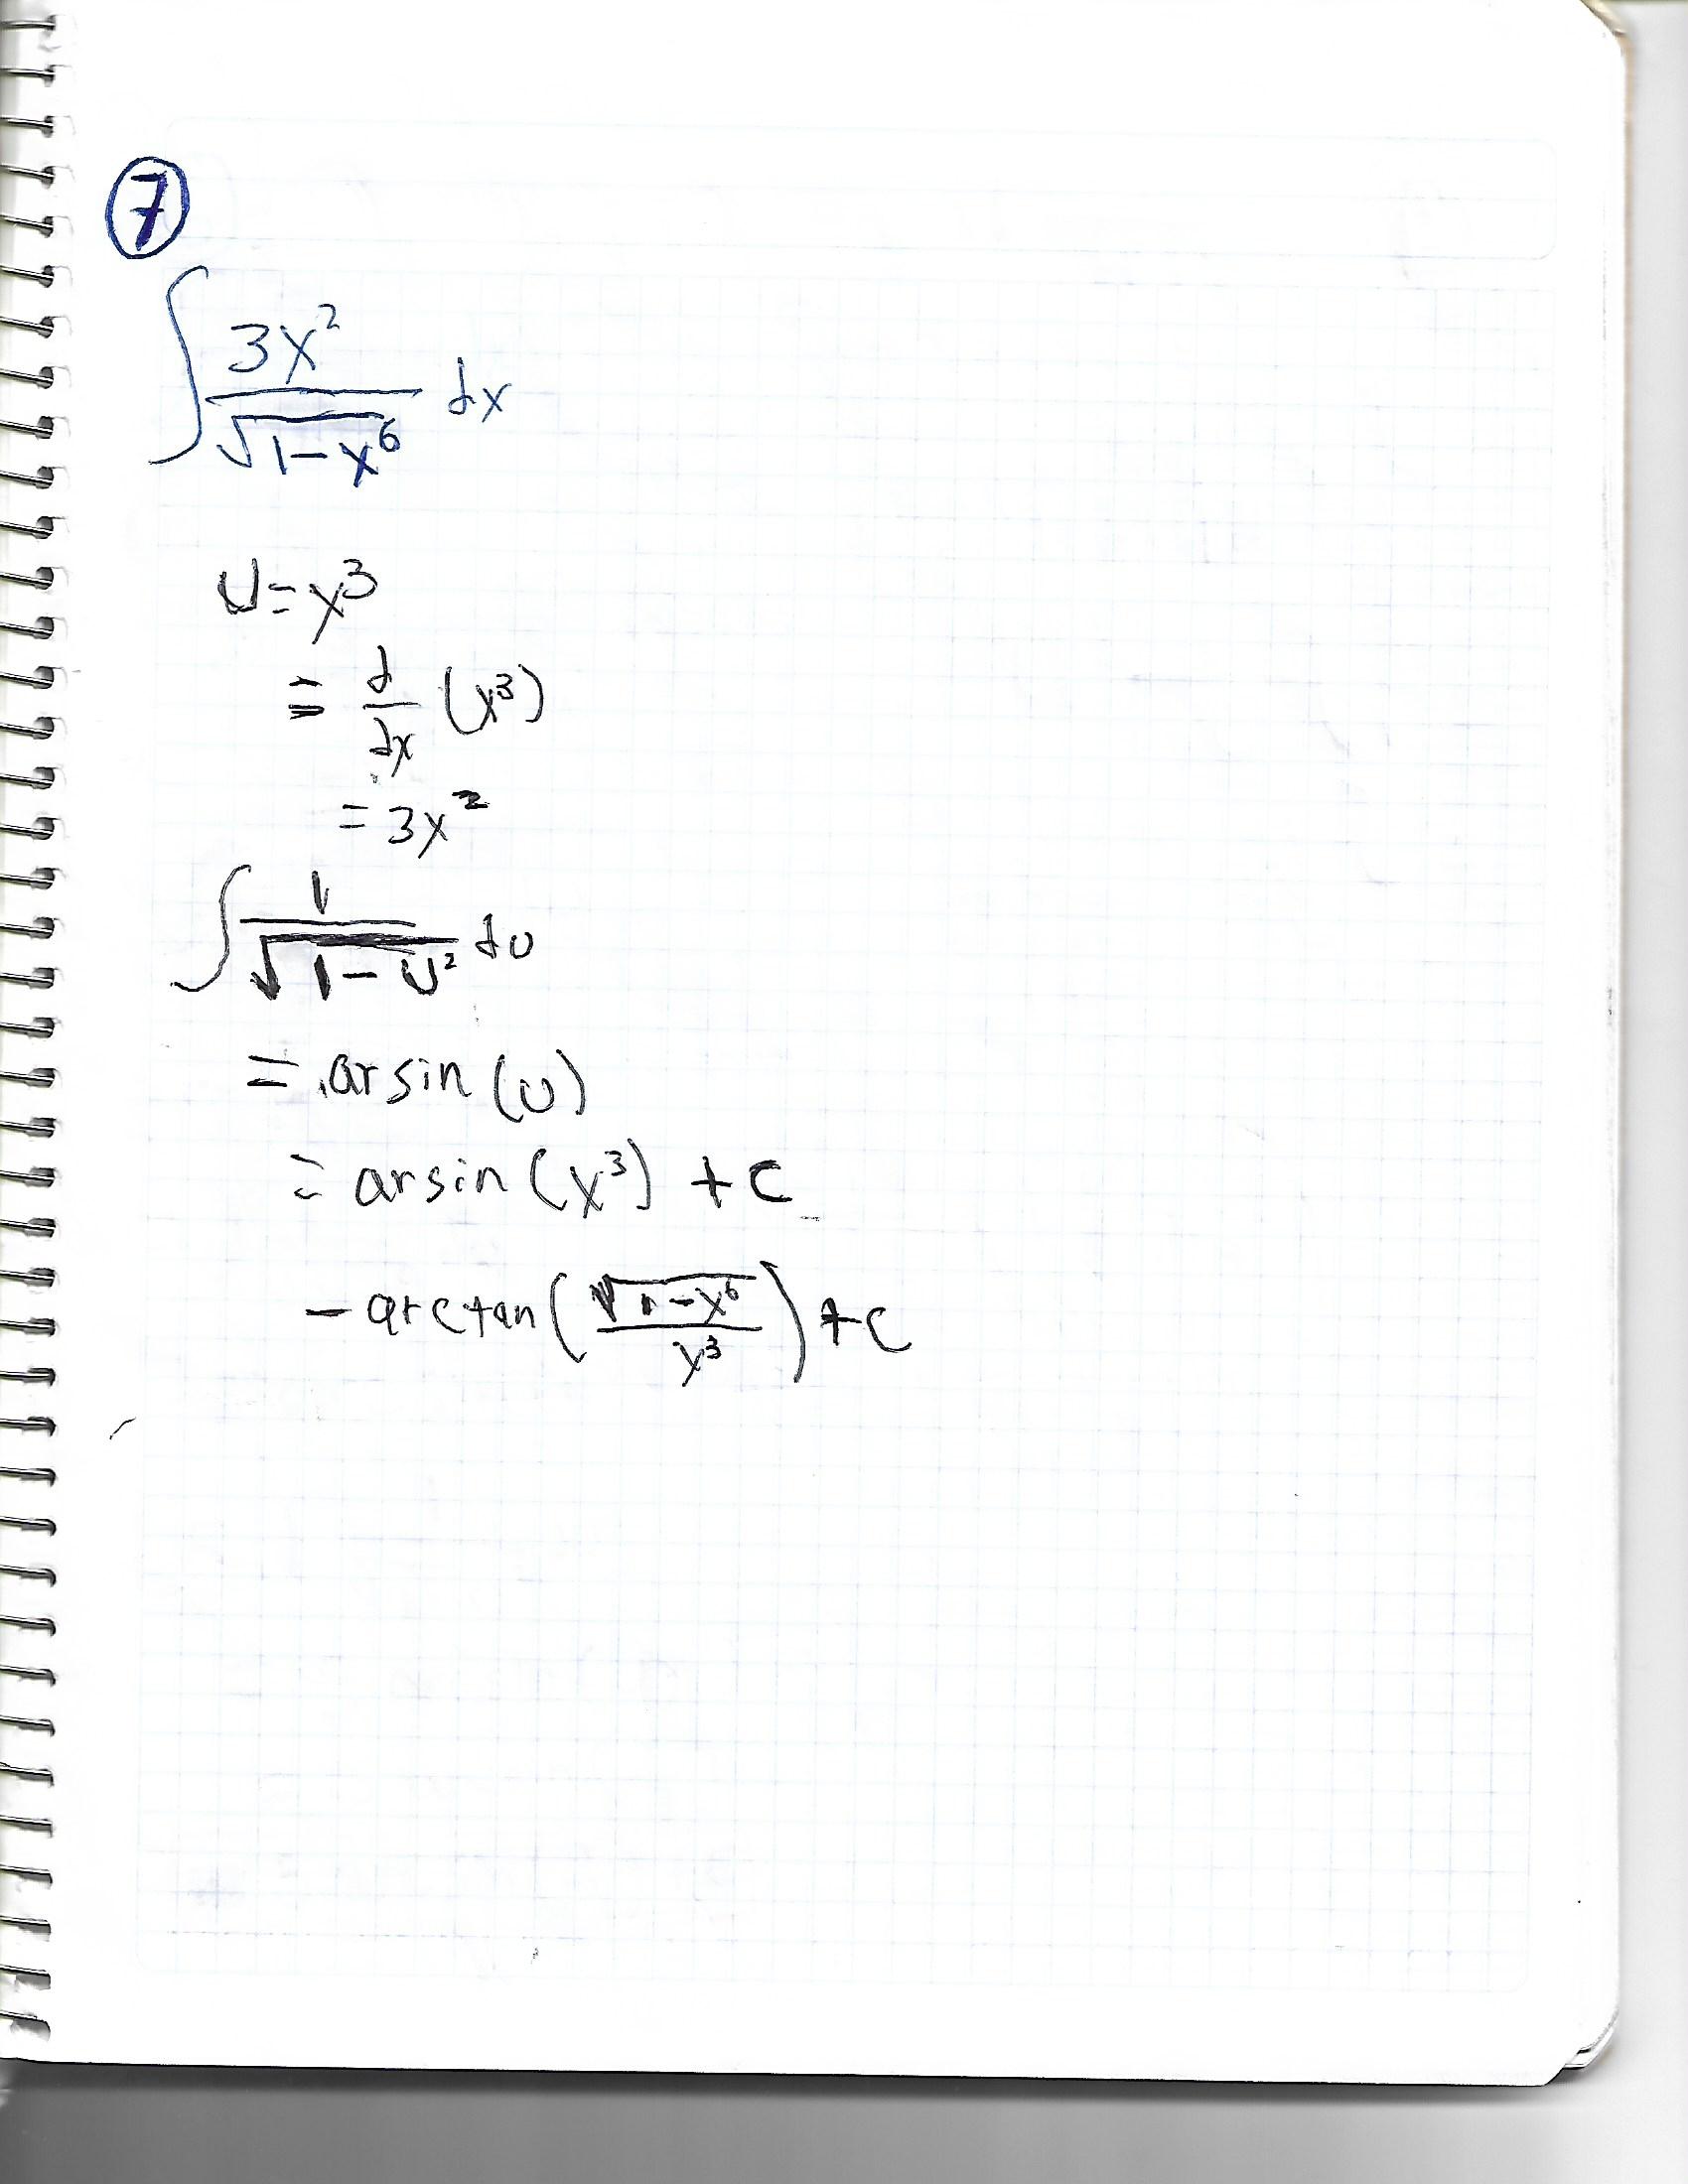 7
∫ 3x² / √(1-x⁶) dx
U=x³
= d/dx (x³)
= 3x²
∫ 1 / √(1-U²) du
= arsin (u)
= arsin (x³) + c
- arctan ( √(1-x⁶) / x³ ) + c